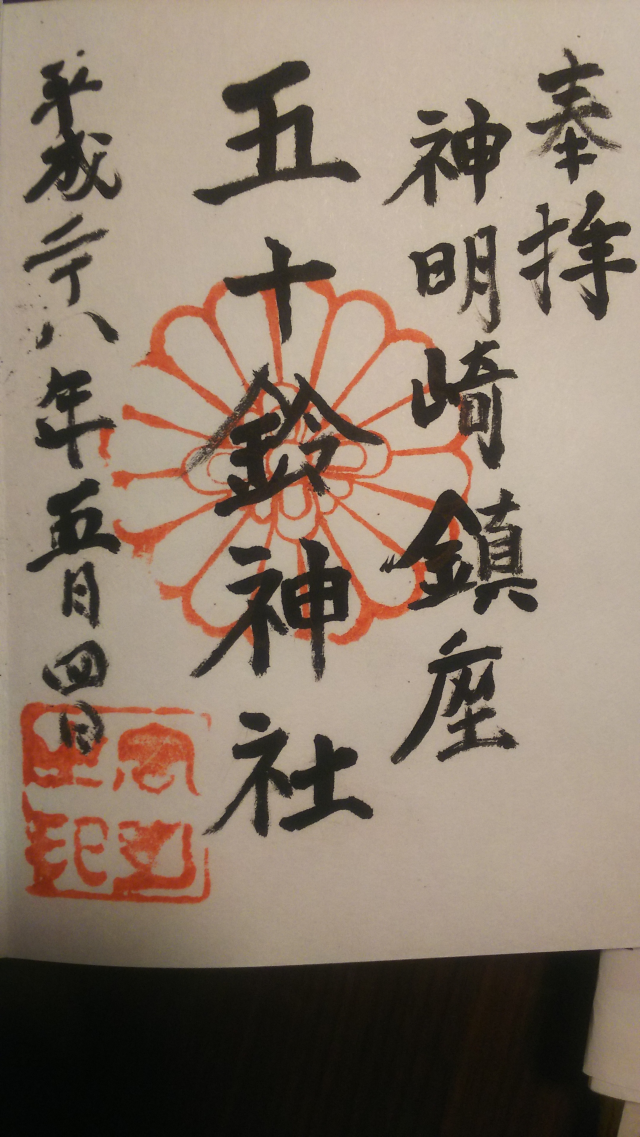 奉拝
神明崎鎮座
五十鈴神社
平成二十八年五月四日
宮司
之印